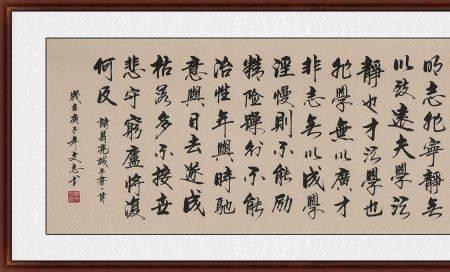 明志非寧靜無
以致遠夫學須
靜也才須學也
非學無以廣才
非志無以成學
淫慢則不能勵
精險躁則不能
治性年與時馳
意與日去遂成
枯落多不接世
悲守窮廬將復
何及
諸葛亮誡子書一首
歲在庚子年